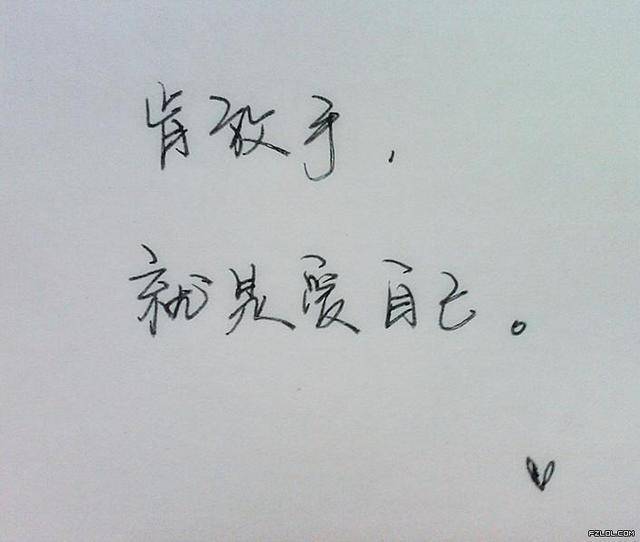 肯放手，
就是爱自己。
PZLOL.COM